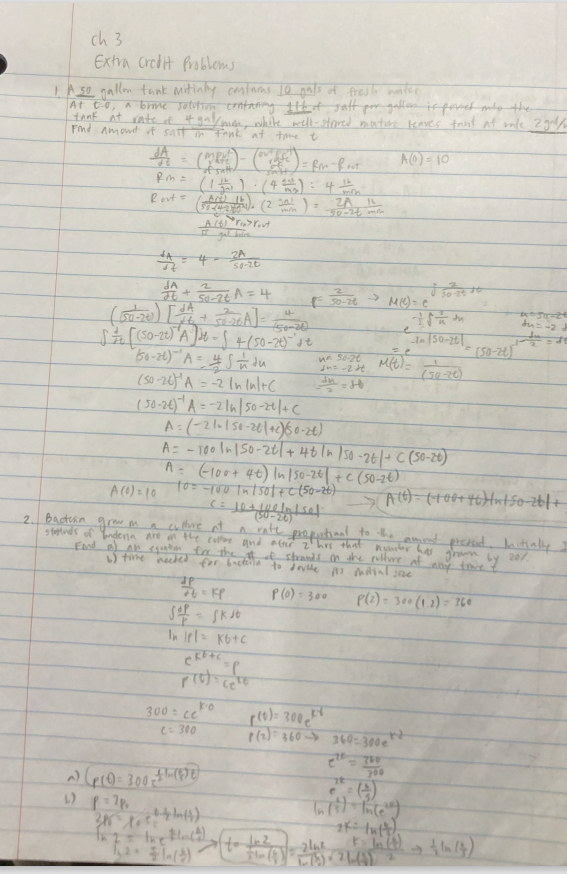 ch 3
Extra Credit Problems
1 A 50 gallon tank initially contains 10 gals of fresh water.
At t=0, a brine solution containing 1 lb of salt per gallon is poured into the
tank at rate of 4 gal/min, while well-stirred mixture leaves tank at rate 2 gal/
Find amount of salt in tank at time t
dA/dt = (input rate of salt) - (output rate of salt) = Rin - Rout A(0)=10
Rin = (1 lb/gal) · (4 gal/min) = 4 lb/min
Rout = · (2 gal/min) = 2A/50-2t lb/min
A(t)
dA/dt = 4 - 2A/50-2t
dA/dt + 2/50-2t A = 4
(1/(50-2t)) [dA/dt + 2/50-2t A] = 4/(50-2t)
∫ d/dt [(50-2t)⁻¹ A] dt = ∫ 4(50-2t)⁻¹ dt
(50-2t)⁻¹ A = -4/2 ∫ 1/u du u=50-2t
du=-2dt
M(t) = 1/(50-2t)
(50-2t)⁻¹ A = -2 ln|u|+c
(50-2t)⁻¹ A = -2 ln|50-2t|+c
A = (-2 ln|50-2t|+c)(50-2t)
A = -100 ln|50-2t| + 4t ln|50-2t| + c(50-2t)
A = (-100 + 4t) ln|50-2t| + c(50-2t)
A(0)=10 10 = -100 ln|50| + c(50-2t) → A(t) = (-100+4t) ln|50-2t| +
c = 10+100 ln|50| / (50-2t)
2. Bacteria grow in a culture at a rate proportional to the amount present. Initially 3
strands of bacteria are in the culture and after 2 hrs that number has grown by 20%
Find a) an equation for the # of strands in the culture at any time t
b) time needed for bacteria to double its initial size
dP/dt = KP P(0) = 300 P(2) = 300(1.2) = 360
∫ dP/P = ∫ K dt
ln|P| = Kt+c
e^(Kt+c) = P
P(t) = ce^(Kt)
300 = ce^(K·0) P(t) = 300e^(Kt)
c = 300 P(2) = 360 → 360 = 300e^(K2)
e^(2K) = 360/300
a) P(t) = 300e^(½ln(6/5)t) e^(2K) = (6/5)
b) P = 2P₀ ln(6/5) = ln(e^(2K))
2K = ln(6/5)
ln 2 = t/2 ln(6/5) → t = ln 2 / ½ln(6/5) K = ln(6/5)/2 → ½ ln(6/5)